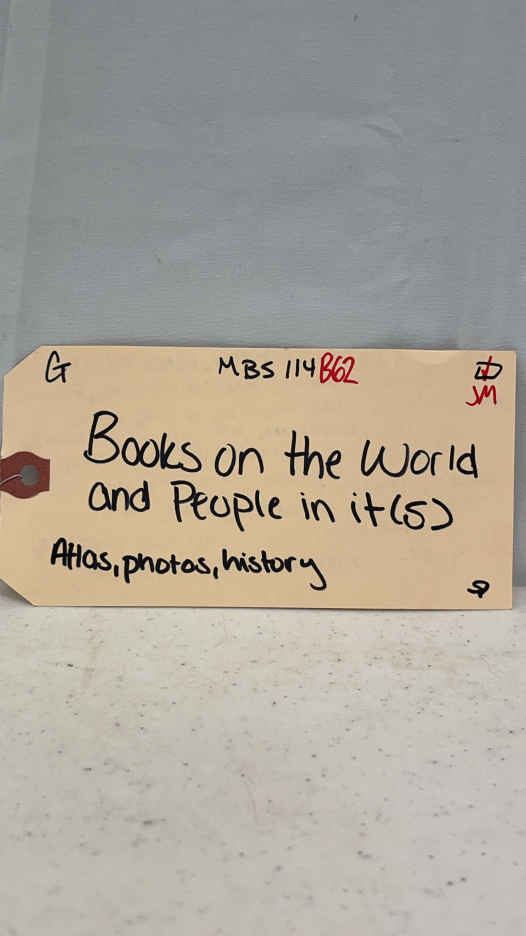 G MBS 114 B62
JM
Books on the World
and People in it (5)
Atlas, photos, history